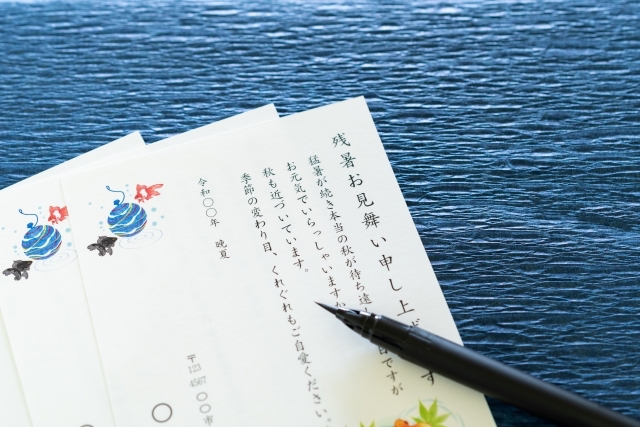 残暑お見舞い申し上げます
猛暑が続き本当の秋が待ち遠
日ですが
お元気でいらっしゃいますか
秋も近づいています。
季節の変わり目、くれぐれもご自愛ください。
令和〇〇年 晩夏
〒123 4567 〇〇市
〇